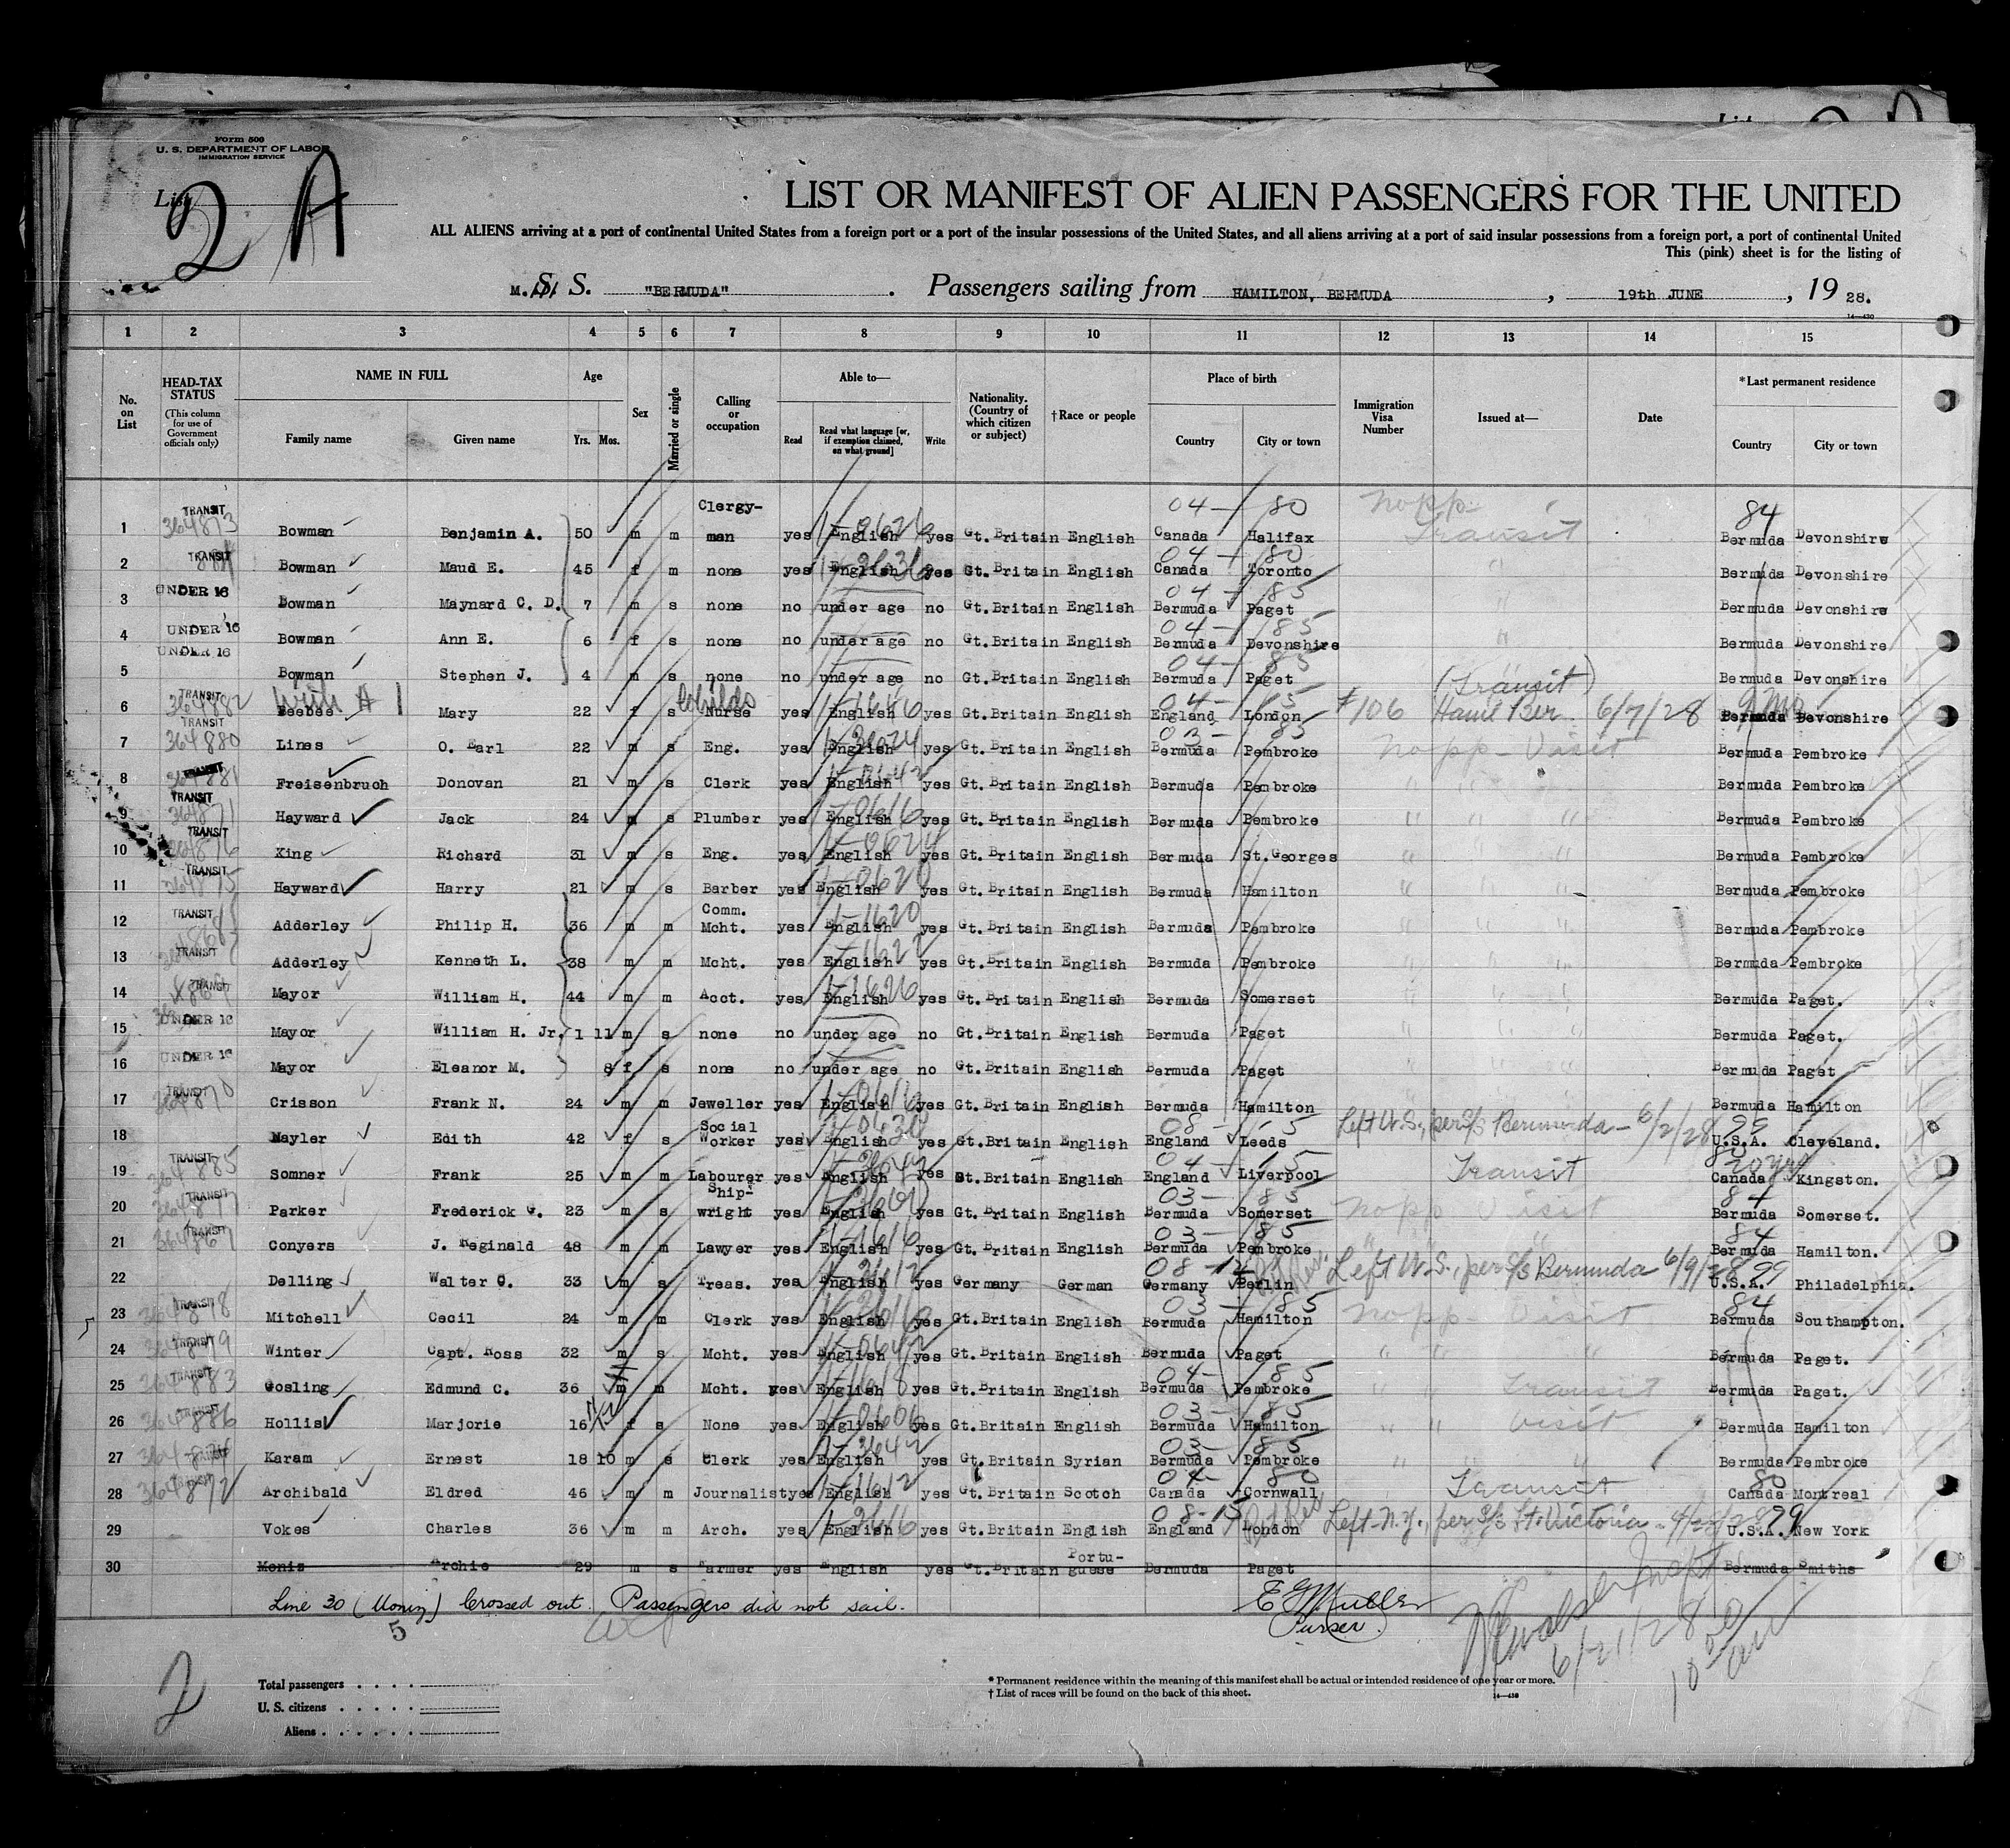 Form 500
U. S. DEPARTMENT OF LABOR
IMMIGRATION SERVICE
List 2 A
LIST OR MANIFEST OF ALIEN PASSENGERS FOR THE UNITED
ALL ALIENS arriving at a port of continental United States from a foreign port or a port of the insular possessions of the United States, and all aliens arriving at a port of said insular possessions from a foreign port, a port of continental United
This (pink) sheet is for the listing of
M. S. "BERMUDA" . Passengers sailing from HAMILTON, BERMUDA , 19th JUNE , 19 28.
14—430
1 2 3 4 5 6 7 8 9 10 11 12 13 14 15
No. on List
HEAD-TAX STATUS (This column for use of Government officials only)
NAME IN FULL Family name Given name
Age Yrs. Mos.
Sex
Married or single
Calling or occupation
Able to— Read Read what language [or, if exemption claimed, on what ground] Write
Nationality. (Country of which citizen or subject)
†Race or people
Place of birth Country City or town
Immigration Visa Number
Issued at—
Date
*Last permanent residence Country City or town
04 — 80 nopp 84
1 TRANSIT 364873 Bowman Benjamin A. 50 m m Clergy- man yes English yes Gt.Britain English Canada Halifax Transit Bermuda Devonshire
04 — 80
2 TRANSIT Bowman Maud E. 45 f m none yes English yes Gt.Britain English Canada Toronto " Bermuda Devonshire
04 — 85
3 UNDER 16 Bowman Maynard C. D. 7 m s none no under age no Gt.Britain English Bermuda Paget " Bermuda Devonshire
04 — 85
4 UNDER 16 Bowman Ann E. 6 f s none no under age no Gt.Britain English Bermuda Devonshire " Bermuda Devonshire
04 — 85
5 UNDER 16 Bowman Stephen J. 4 m s none no under age no Gt.Britain English Bermuda Paget " Bermuda Devonshire
with # 1 Childs 04 — 15 (Transit)
6 TRANSIT 364882 Beebee Mary 22 f s Nurse yes English yes Gt.Britain English England London #106 Ham Ber 6/7/28 Bermuda Devonshire
03 — 85
7 TRANSIT 364880 Lines O. Earl 22 m s Eng. yes English yes Gt.Britain English Bermuda Pembroke nopp – Visit Bermuda Pembroke
8 TRANSIT 364881 Freisenbruch Donovan 21 m s Clerk yes English yes Gt.Britain English Bermuda Pembroke " " Bermuda Pembroke
9 TRANSIT 364871 Hayward Jack 24 m s Plumber yes English yes Gt.Britain English Bermuda Pembroke " " " Bermuda Pembroke
10 TRANSIT 364876 King Richard 31 m s Eng. yes English yes Gt.Britain English Bermuda St.Georges " " " Bermuda Pembroke
11 TRANSIT 364875 Hayward Harry 21 m s Barber yes English yes Gt.Britain English Bermuda Hamilton " " " Bermuda Pembroke
12 TRANSIT Adderley Philip H. 36 m m Comm. Mcht. yes English yes Gt.Britain English Bermuda Pembroke " " " Bermuda Pembroke
13 TRANSIT Adderley Kenneth L. 38 m m Mcht. yes English yes Gt.Britain English Bermuda Pembroke " " " Bermuda Pembroke
14 TRANSIT Mayor William H. 44 m m Acct. yes English yes Gt.Britain English Bermuda Somerset " " " Bermuda Paget.
15 UNDER 16 Mayor William H. Jr. 1 11 m s none no under age no Gt.Britain English Bermuda Paget " " " Bermuda Paget.
16 UNDER 16 Mayor Eleanor M. 8 f s none no under age no Gt.Britain English Bermuda Paget " " " Bermuda Paget
17 TRANSIT 364870 Crisson Frank N. 24 m m Jeweller yes English yes Gt.Britain English Bermuda Hamilton Bermuda Hamilton
08 — 15 99
18 Mayler Edith 42 f s Social Worker yes English yes Gt.Britain English England Leeds Left U.S., per S/S Bermuda – 6/2/28 U.S.A. Cleveland.
04 15 80 20 yrs
19 TRANSIT 364885 Somner Frank 25 m m Labourer yes English yes Gt.Britain English England Liverpool Transit Canada Kingston.
03 — 85 84
20 TRANSIT 364877 Parker Frederick G. 23 m s Ship- wright yes English yes Gt.Britain English Bermuda Somerset nopp Visit Bermuda Somerset.
03 — 85 84
21 TRANSIT 364867 Conyers J. Reginald 48 m m Lawyer yes English yes Gt.Britain English Bermuda Pembroke " " Bermuda Hamilton.
08 – 12 99
22 Delling Walter O. 33 m s Treas. yes English yes Germany German Germany Berlin Left U.S., per S/S Bermuda 6/9/28 U.S.A. Philadelphia.
03 — 85 84
23 TRANSIT 364878 Mitchell Cecil 24 m m Clerk yes English yes Gt.Britain English Bermuda Hamilton nopp Visit Bermuda Southampton.
24 TRANSIT 364879 Winter Capt. Ross 32 m s Mcht. yes English yes Gt.Britain English Bermuda Paget " " " Bermuda Paget.
04 — 85
25 TRANSIT 364883 Gosling Edmund C. 36 m m Mcht. yes English yes Gt.Britain English Bermuda Pembroke " " Transit Bermuda Paget.
03 — 85
26 TRANSIT 364886 Hollis Marjorie 16 f s None yes English yes Gt.Britain English Bermuda Hamilton " " Visit Bermuda Hamilton
03 — 85
27 Karam Ernest 18 10 m s Clerk yes English yes Gt.Britain Syrian Bermuda Pembroke " " " Bermuda Pembroke
04 — 80 80
28 364872 Archibald Eldred 46 m m Journalist yes English yes Gt.Britain Scotch Canada Cornwall Transit Canada Montreal
08 – 15 99
29 Vokes Charles 36 m m Arch. yes English yes Gt.Britain English England London Left N.Y., per S/S Ft. Victoria – 4/22/28 U.S.A. New York
30 Moniz Archie 29 m s Farmer yes English yes Gt.Britain Portu- guese Bermuda Paget Bermuda Smiths
Line 30 (Moniz) Crossed out. Passengers did not sail. E G Muller
Purser.
5
6/21/28
10
2
Total passengers
U. S. citizens
Aliens
* Permanent residence within the meaning of this manifest shall be actual or intended residence of one year or more.
† List of races will be found on the back of this sheet.
14—430